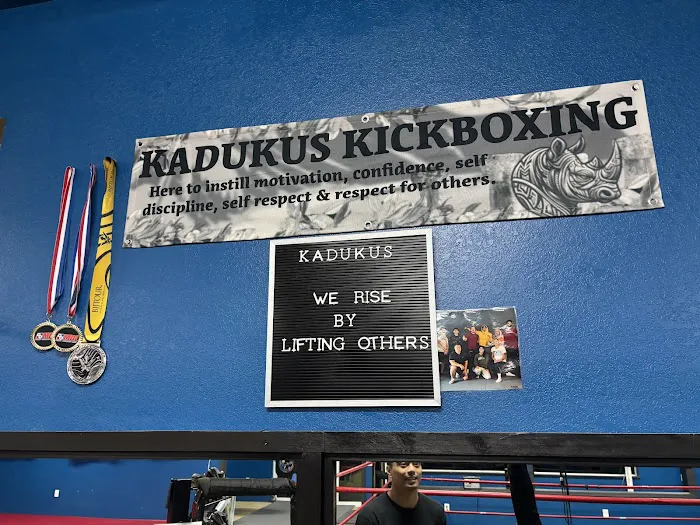 KADUKUS KICKBOXING
Here to instill motivation, confidence, self
discipline, self respect & respect for others.
KADUKUS
WE RISE
BY
LIFTING OTHERS